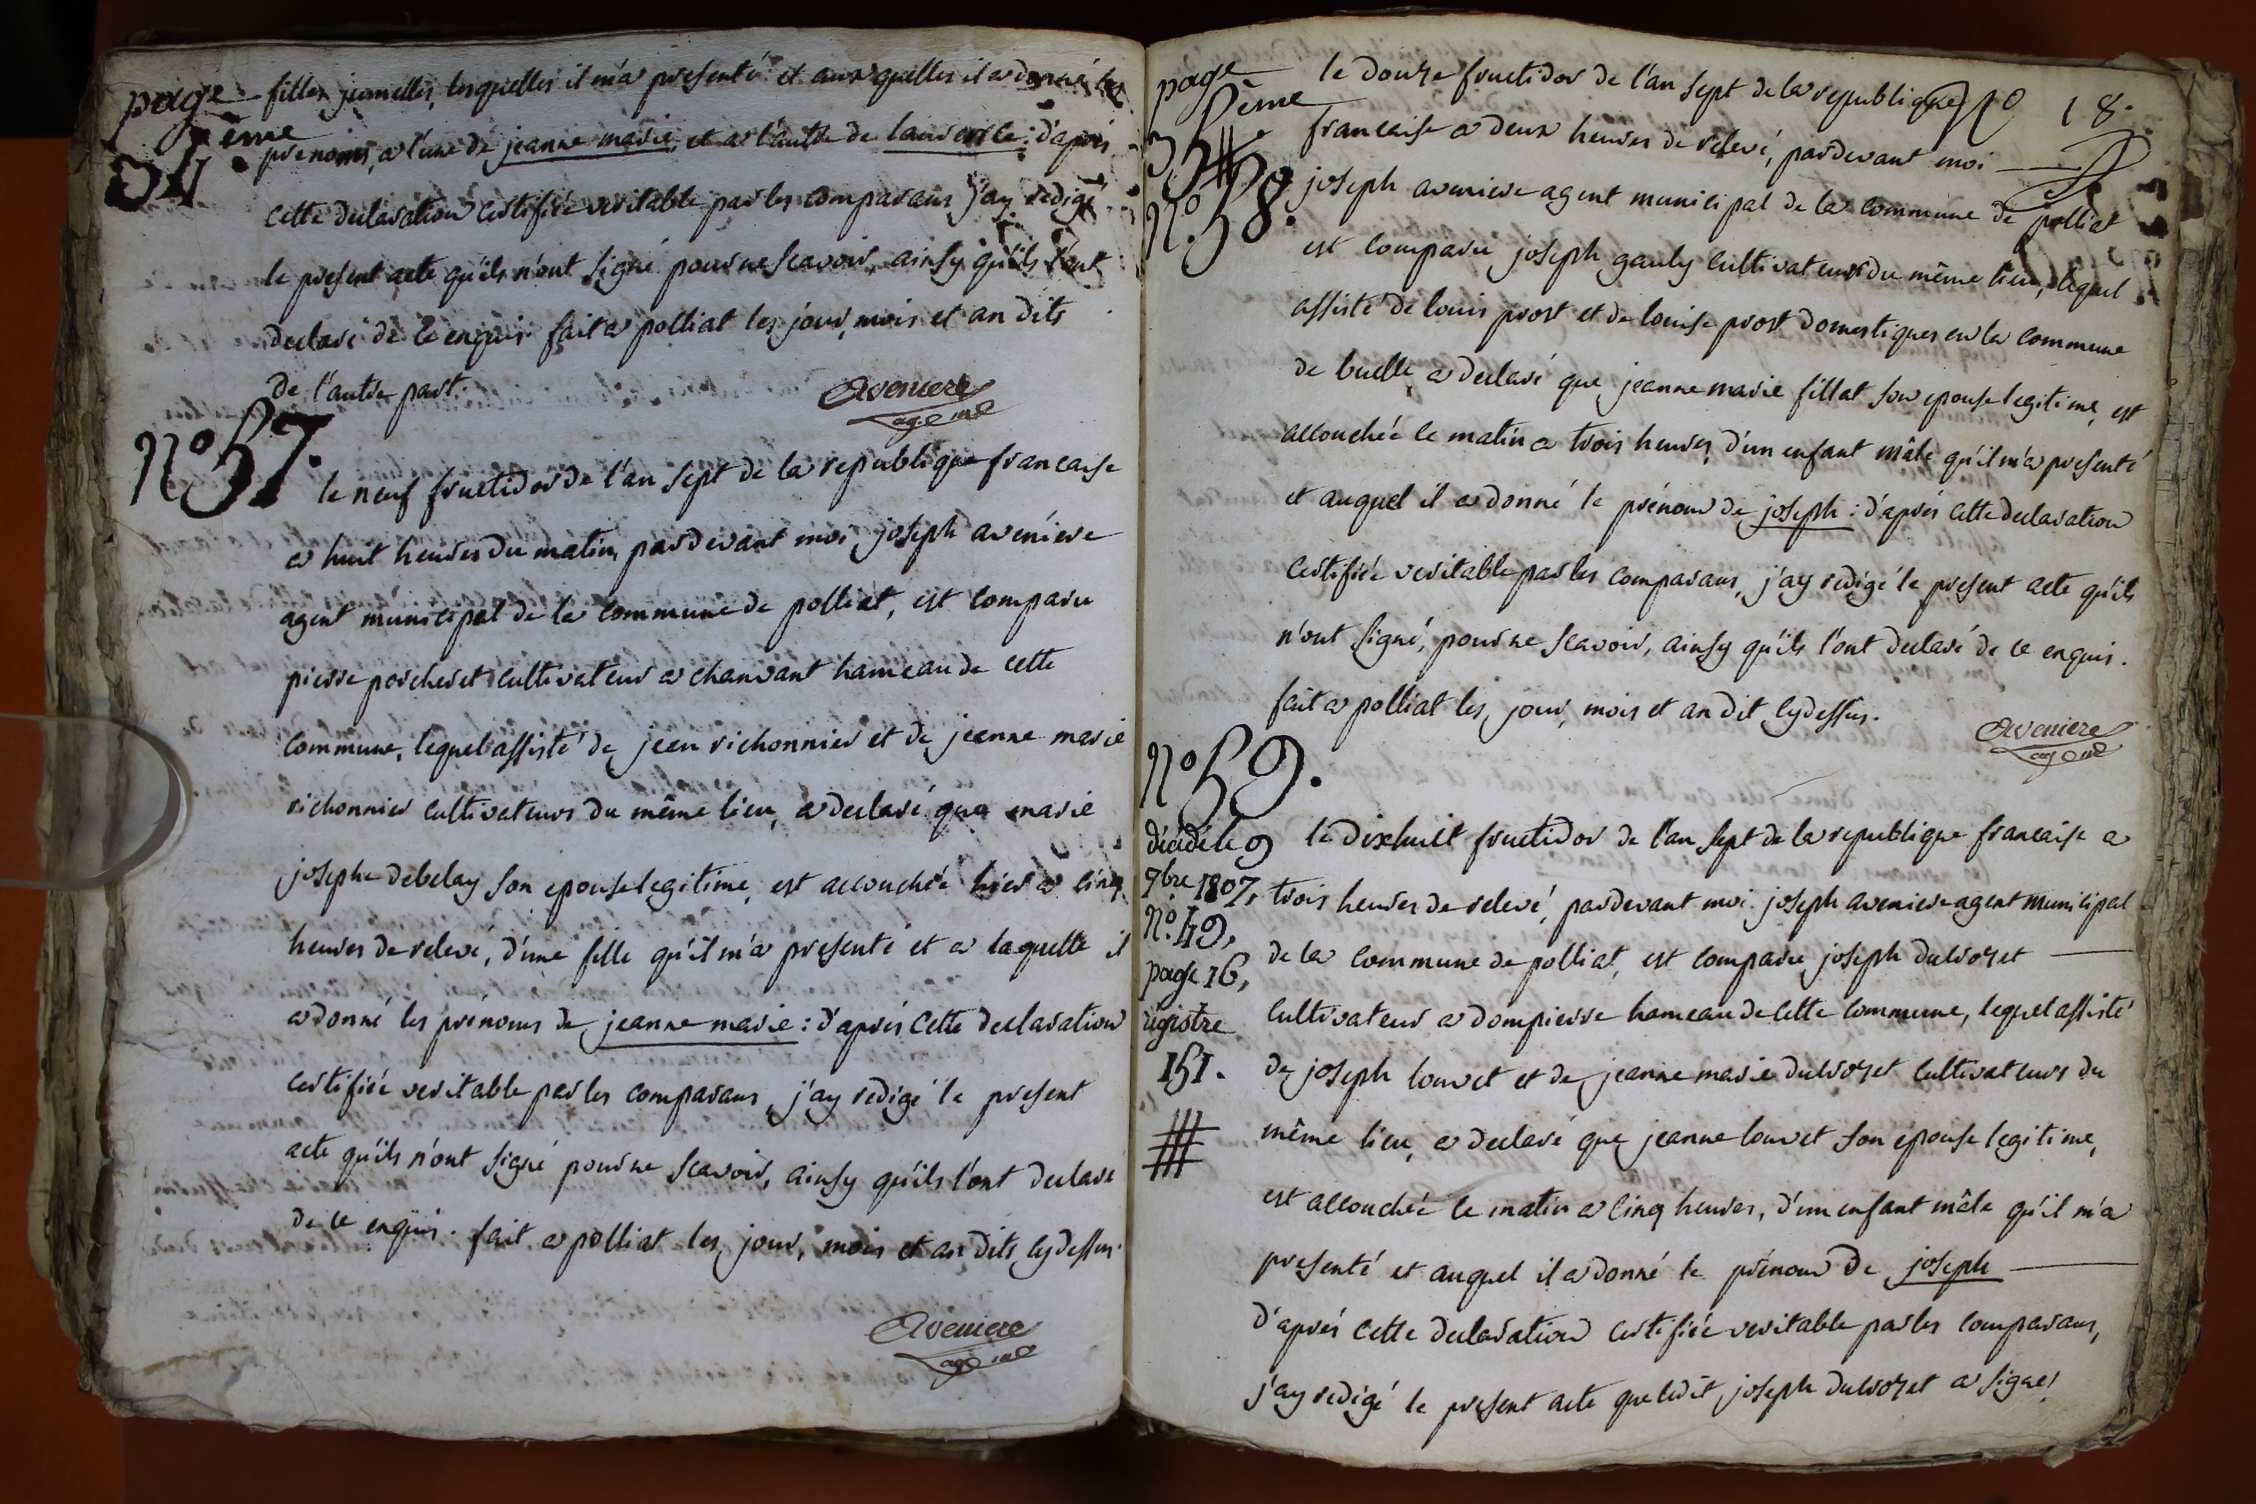 page
34.ème
filles jumelles, lesquelles il m'a presenté et auxquelles il a donné les
prenoms, a l'une de jeanne marie, et a l'autre de laurence : d'aprés
cette declaration certifiée veritable par les comparans j'ay redigé
le present acte qu'ils n'ont signé pour ne scavoir, ainsy qu'ils l'ont
declaré de ce enquis. fait a polliat les jour, mois et an dits
de l'autre part.
Aveniere
ag. m.
N.º 57.
le neuf fructidor de l'an sept de la republique francaise
a huit heures du matin, pardevant moi joseph aveniere
agent municipal de la commune de polliat, est comparu
pierre porcheret cultivateur a chanvant hameau de cette
commune, lequel assisté de jean richonnier et de jeanne marie
richonnier cultivateurs du même lieu, a declaré que marie
josephe debelay son epouse legitime, est accouchée hier a cinq
heures de relevé, d'une fille qu'il m'a presenté et a laquelle il
a donné les prénoms de jeanne marie : d'aprés cette declaration
certifiée veritable par les comparans, j'ay redigé le present
acte qu'ils n'ont signé pour ne scavoir, ainsy qu'ils l'ont declaré
de ce enquis. fait a polliat les, jour, mois et an dits cy dessus.
Aveniere
ag. m.
page
35.ème
Nº 18.
N.º 58.
le douze fructidor de l'an sept de la republique
francaise a deux heures de relevé, pardevant moi
joseph aveniere agent municipal de la commune de polliat
est comparu joseph gauly cultivateur du même lieu, lequel
assisté de louis prost et de louise prost domestiques en la commune
de buelle, a declaré que jeanne marie fillat son epouse legitime, est
accouchée ce matin a trois heures, d'un enfant mâle qu'il m'a presenté
et auquel il a donné le prénom de joseph : d'aprés cette declaration
certifiée veritable par les comparans, j'ay redigé le present acte qu'ils
n'ont signé, pour ne scavoir, ainsy qu'ils l'ont declaré de ce enquis.
fait a polliat les, jour, mois et an dit cy dessus.
Aveniere
ag. m.
N.º 59.
décédé le 9
9bre 1807,
N.º 49,
page 16,
régistre
151.
le dixhuit fructidor de l'an sept de la republique francaise a
trois heures de relevé, pardevant moi joseph aveniere agent municipal
de la commune de polliat, est comparu joseph duvozet
cultivateur a dompierre hameau de cette commune, lequel assisté
de joseph louvet et de jeanne marie duvozet cultivateurs du
même lieu, a declaré que jeanne louvet son épouse legitime,
est accouchée ce matin a cinq heures, d'un enfant mâle qu'il m'a
presenté et auquel il a donné le prénom de joseph
d'aprés cette declaration certifiée veritable par les comparans,
j'ay redigé le present acte que ledit joseph duvozet a signé